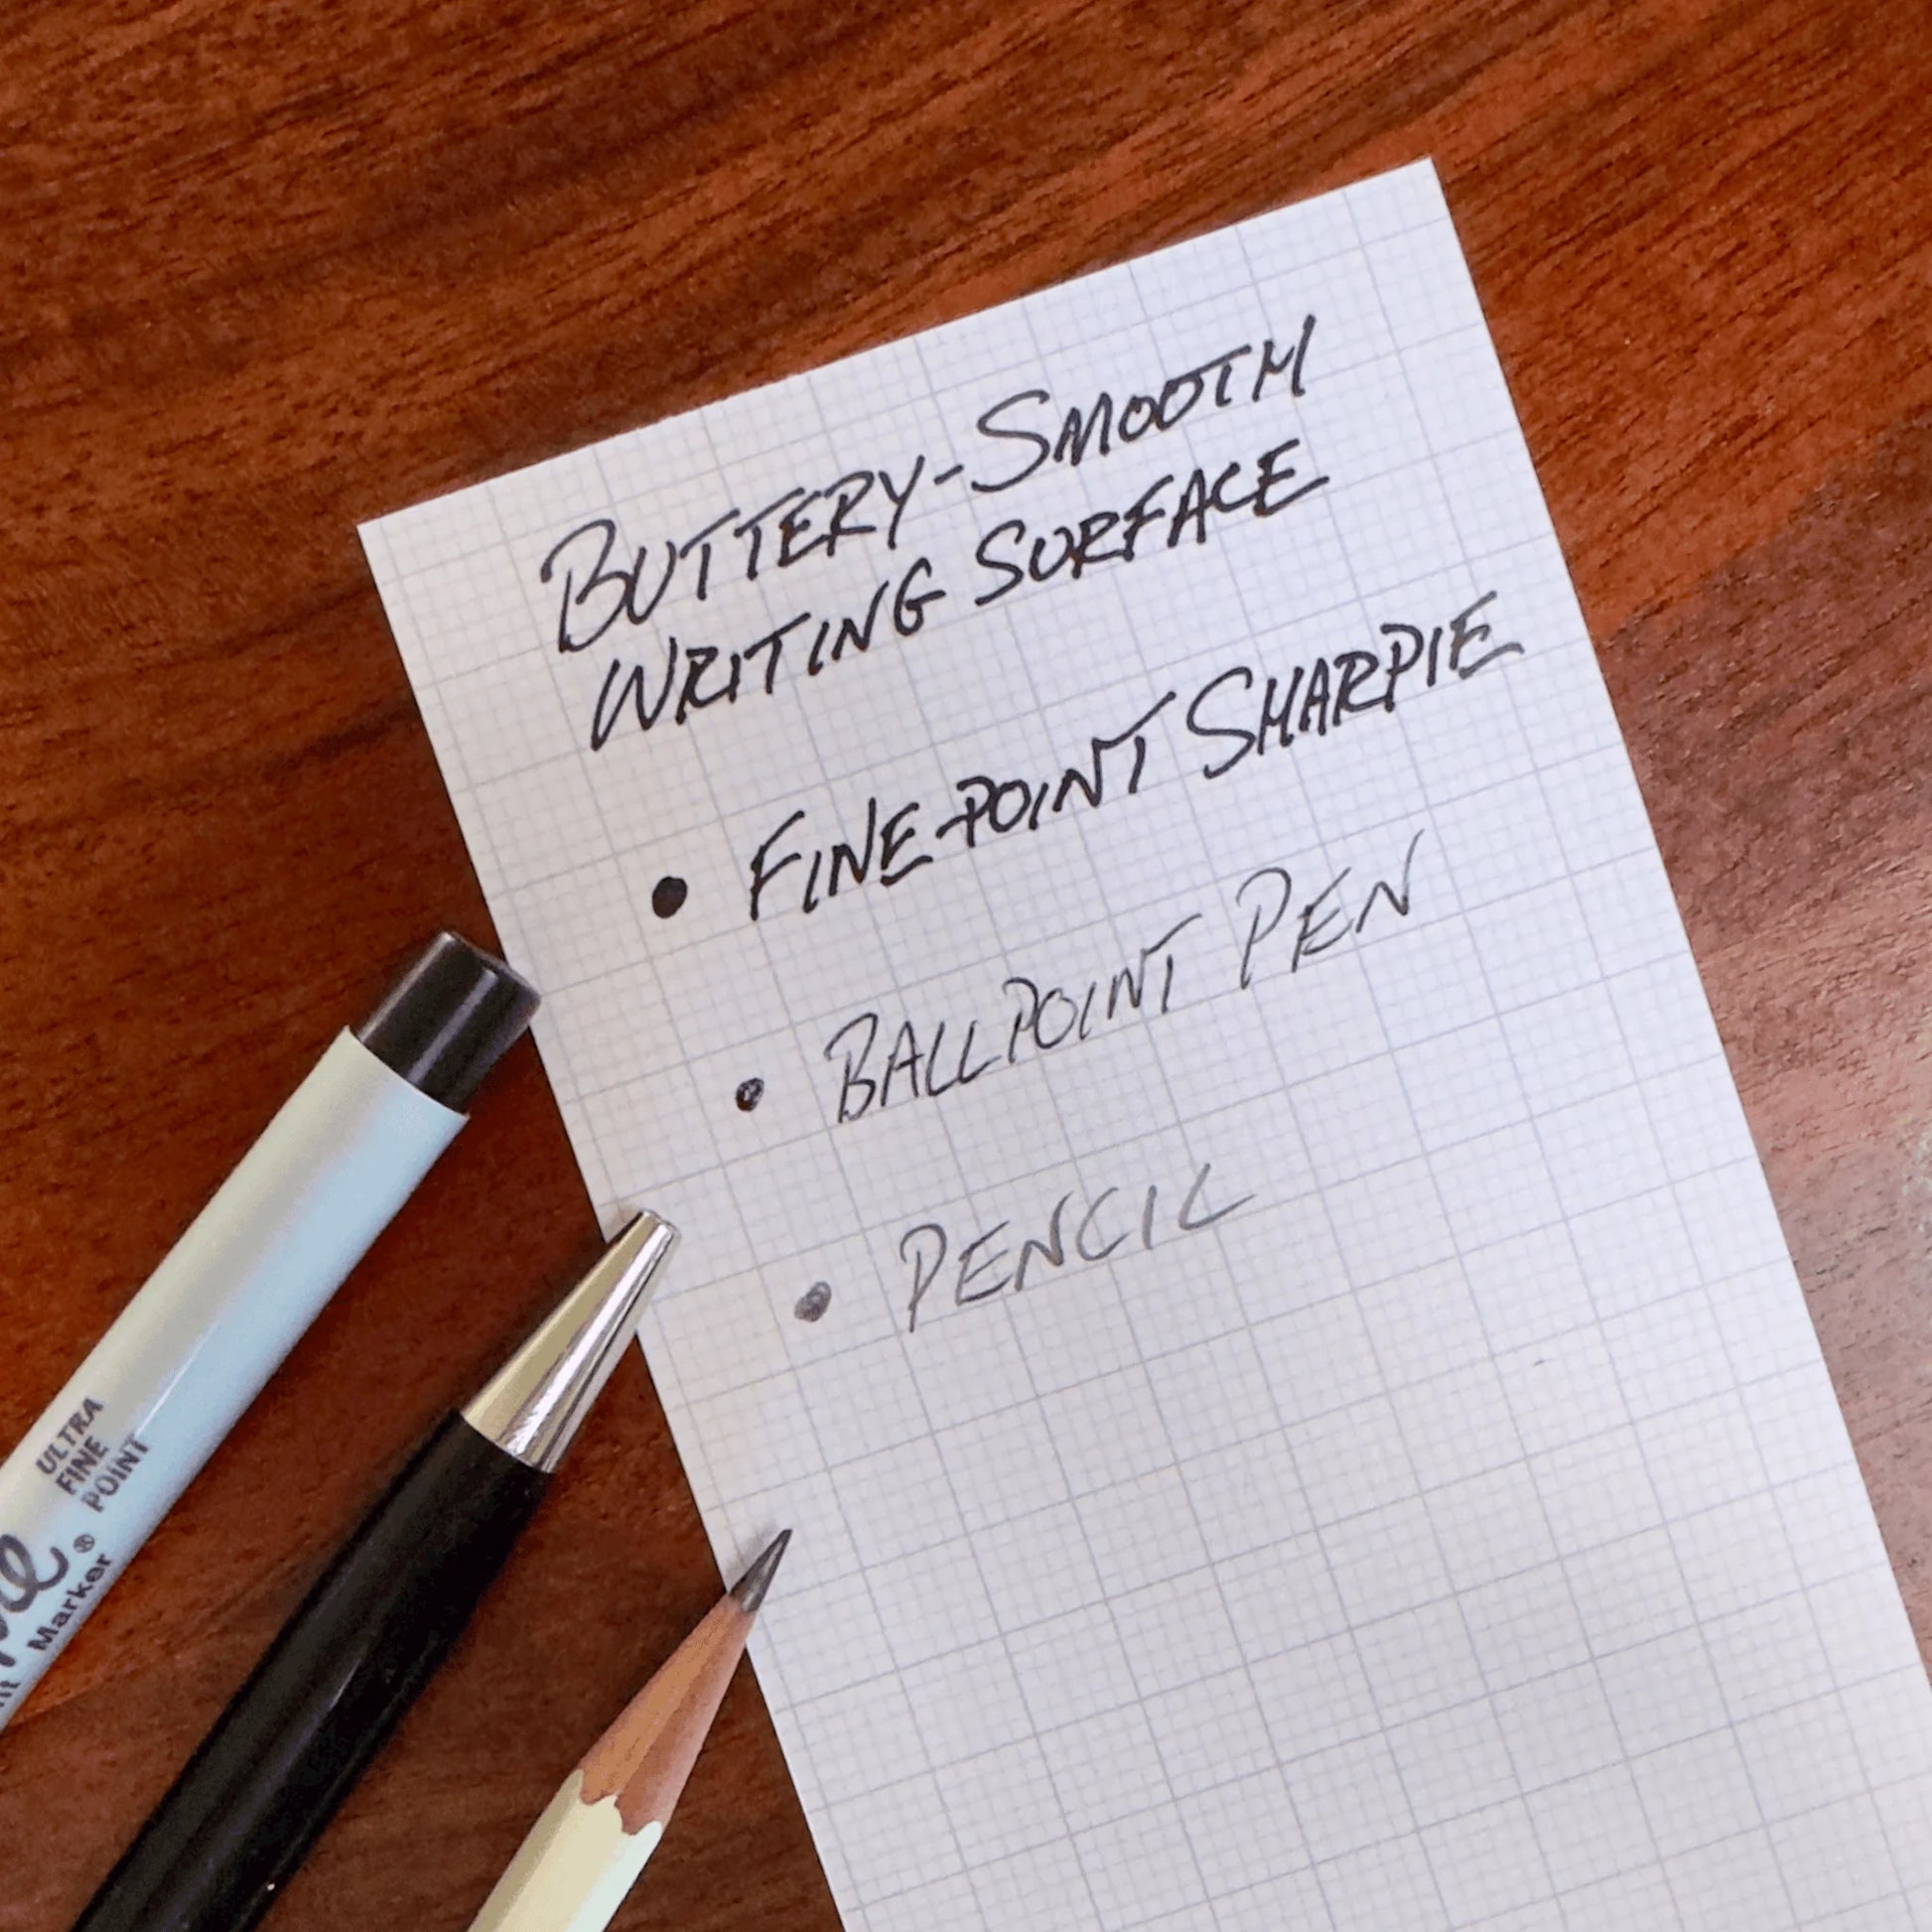 BUTTERY-SMOOTH
WRITING SURFACE
• FINE-POINT SHARPIE
• BALLPOINT PEN
• PENCIL
ULTRA
FINE
POINT
®
Marker